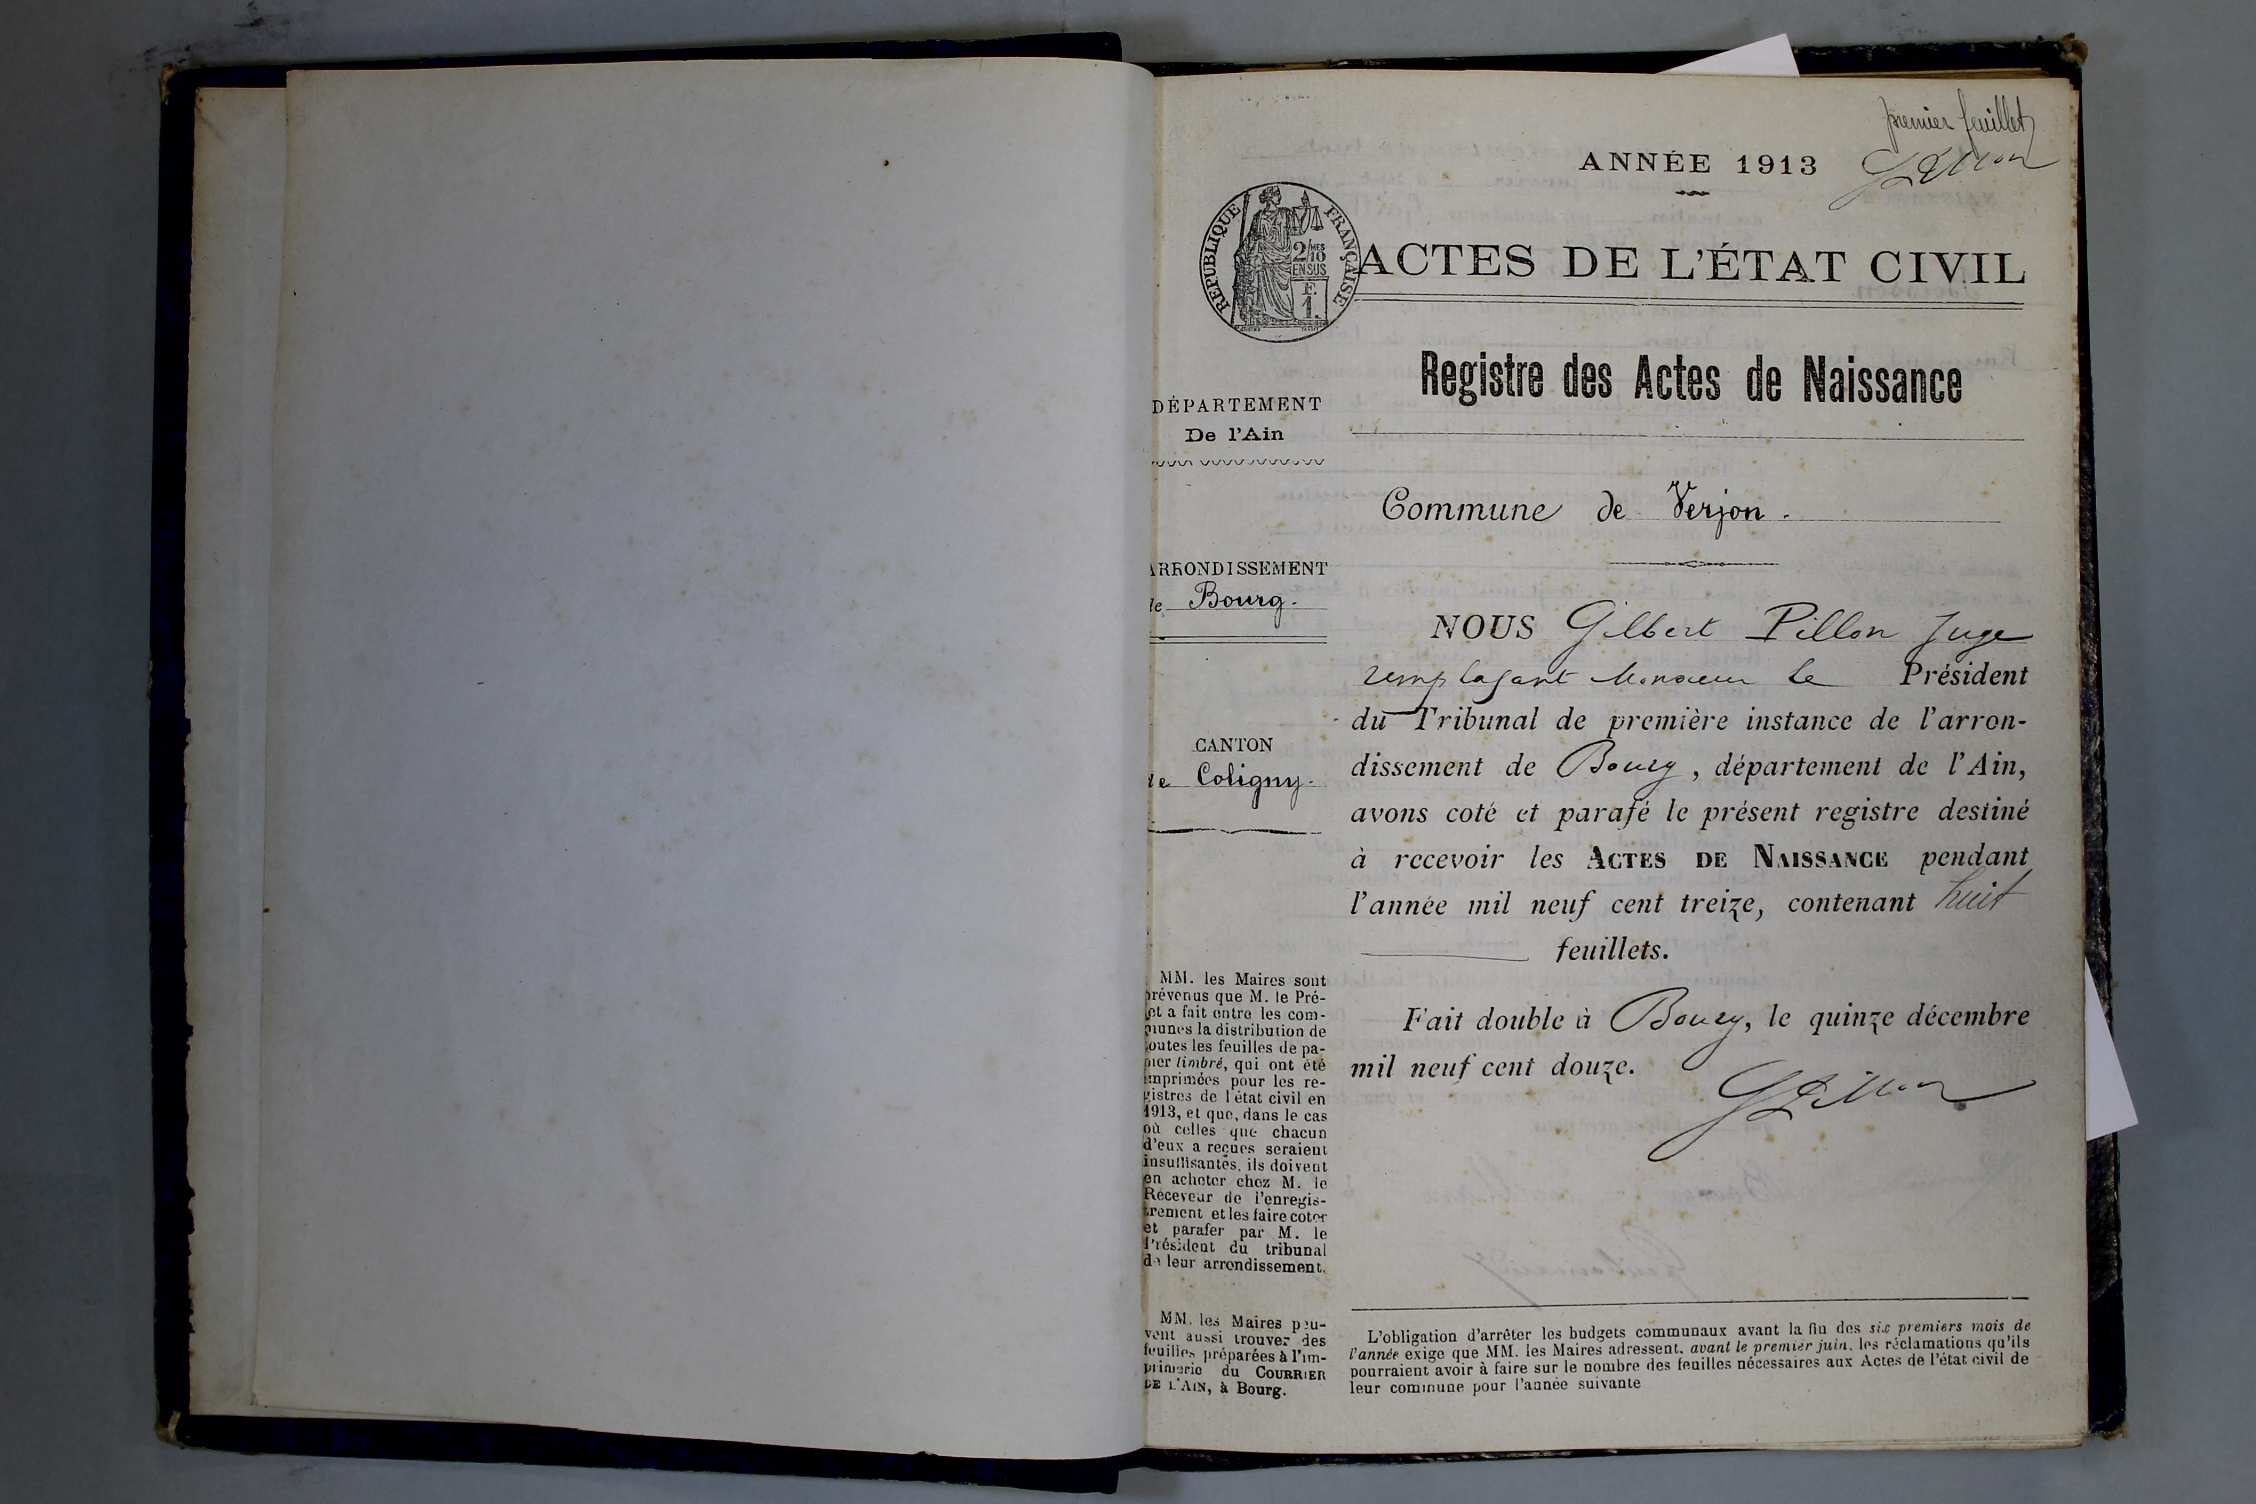 premier feuillet
GPillon
ANNÉE 1913
ACTES DE L'ÉTAT CIVIL
RÉPUBLIQUE FRANÇAISE
2/10 MES
EN SUS
F.
1.
Registre des Actes de Naissance
DÉPARTEMENT
De l'Ain
Commune de Verjon.
ARRONDISSEMENT
de Bourg.
CANTON
de Coligny.
NOUS Gilbert Pillon Juge
remplaçant Monsieur le Président
du Tribunal de première instance de l'arron-
dissement de Bourg, département de l'Ain,
avons coté et parafé le présent registre destiné
à recevoir les ACTES DE NAISSANCE pendant
l'année mil neuf cent treize, contenant huit
feuillets.
Fait double à Bourg, le quinze décembre
mil neuf cent douze.
GPillon
MM. les Maires sont
prévenus que M. le Pré-
fet a fait entre les com-
munes la distribution de
toutes les feuilles de pa-
pier timbré, qui ont été
imprimées pour les re-
gistres de l'état civil en
1913, et que, dans le cas
où celles que chacun
d'eux a reçues seraient
insuffisantes, ils doivent
en acheter chez M. le
Receveur de l'enregis-
trement et les faire coter
et parafer par M. le
Président du tribunal
de leur arrondissement.
MM. les Maires peu-
vent aussi trouver des
feuilles préparées à l'im-
primerie du COURRIER
DE L'AIN, à Bourg.
L'obligation d'arrêter les budgets communaux avant la fin des six premiers mois de
l'année exige que MM. les Maires adressent, avant le premier juin, les réclamations qu'ils
pourraient avoir à faire sur le nombre des feuilles nécessaires aux Actes de l'état civil de
leur commune pour l'année suivante